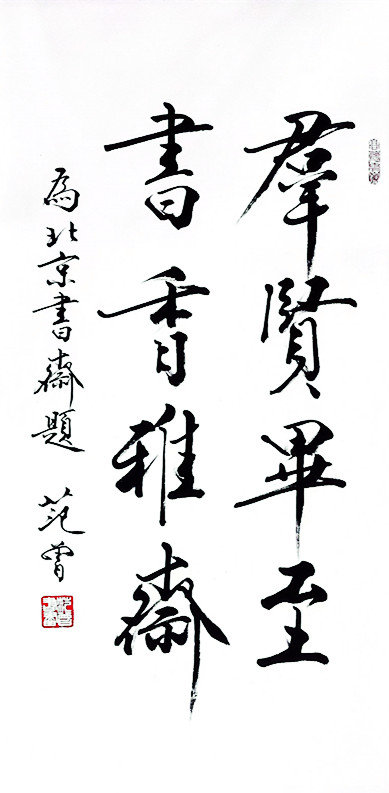 羣賢畢至
書香雅齋
為北京書齋題 范曾